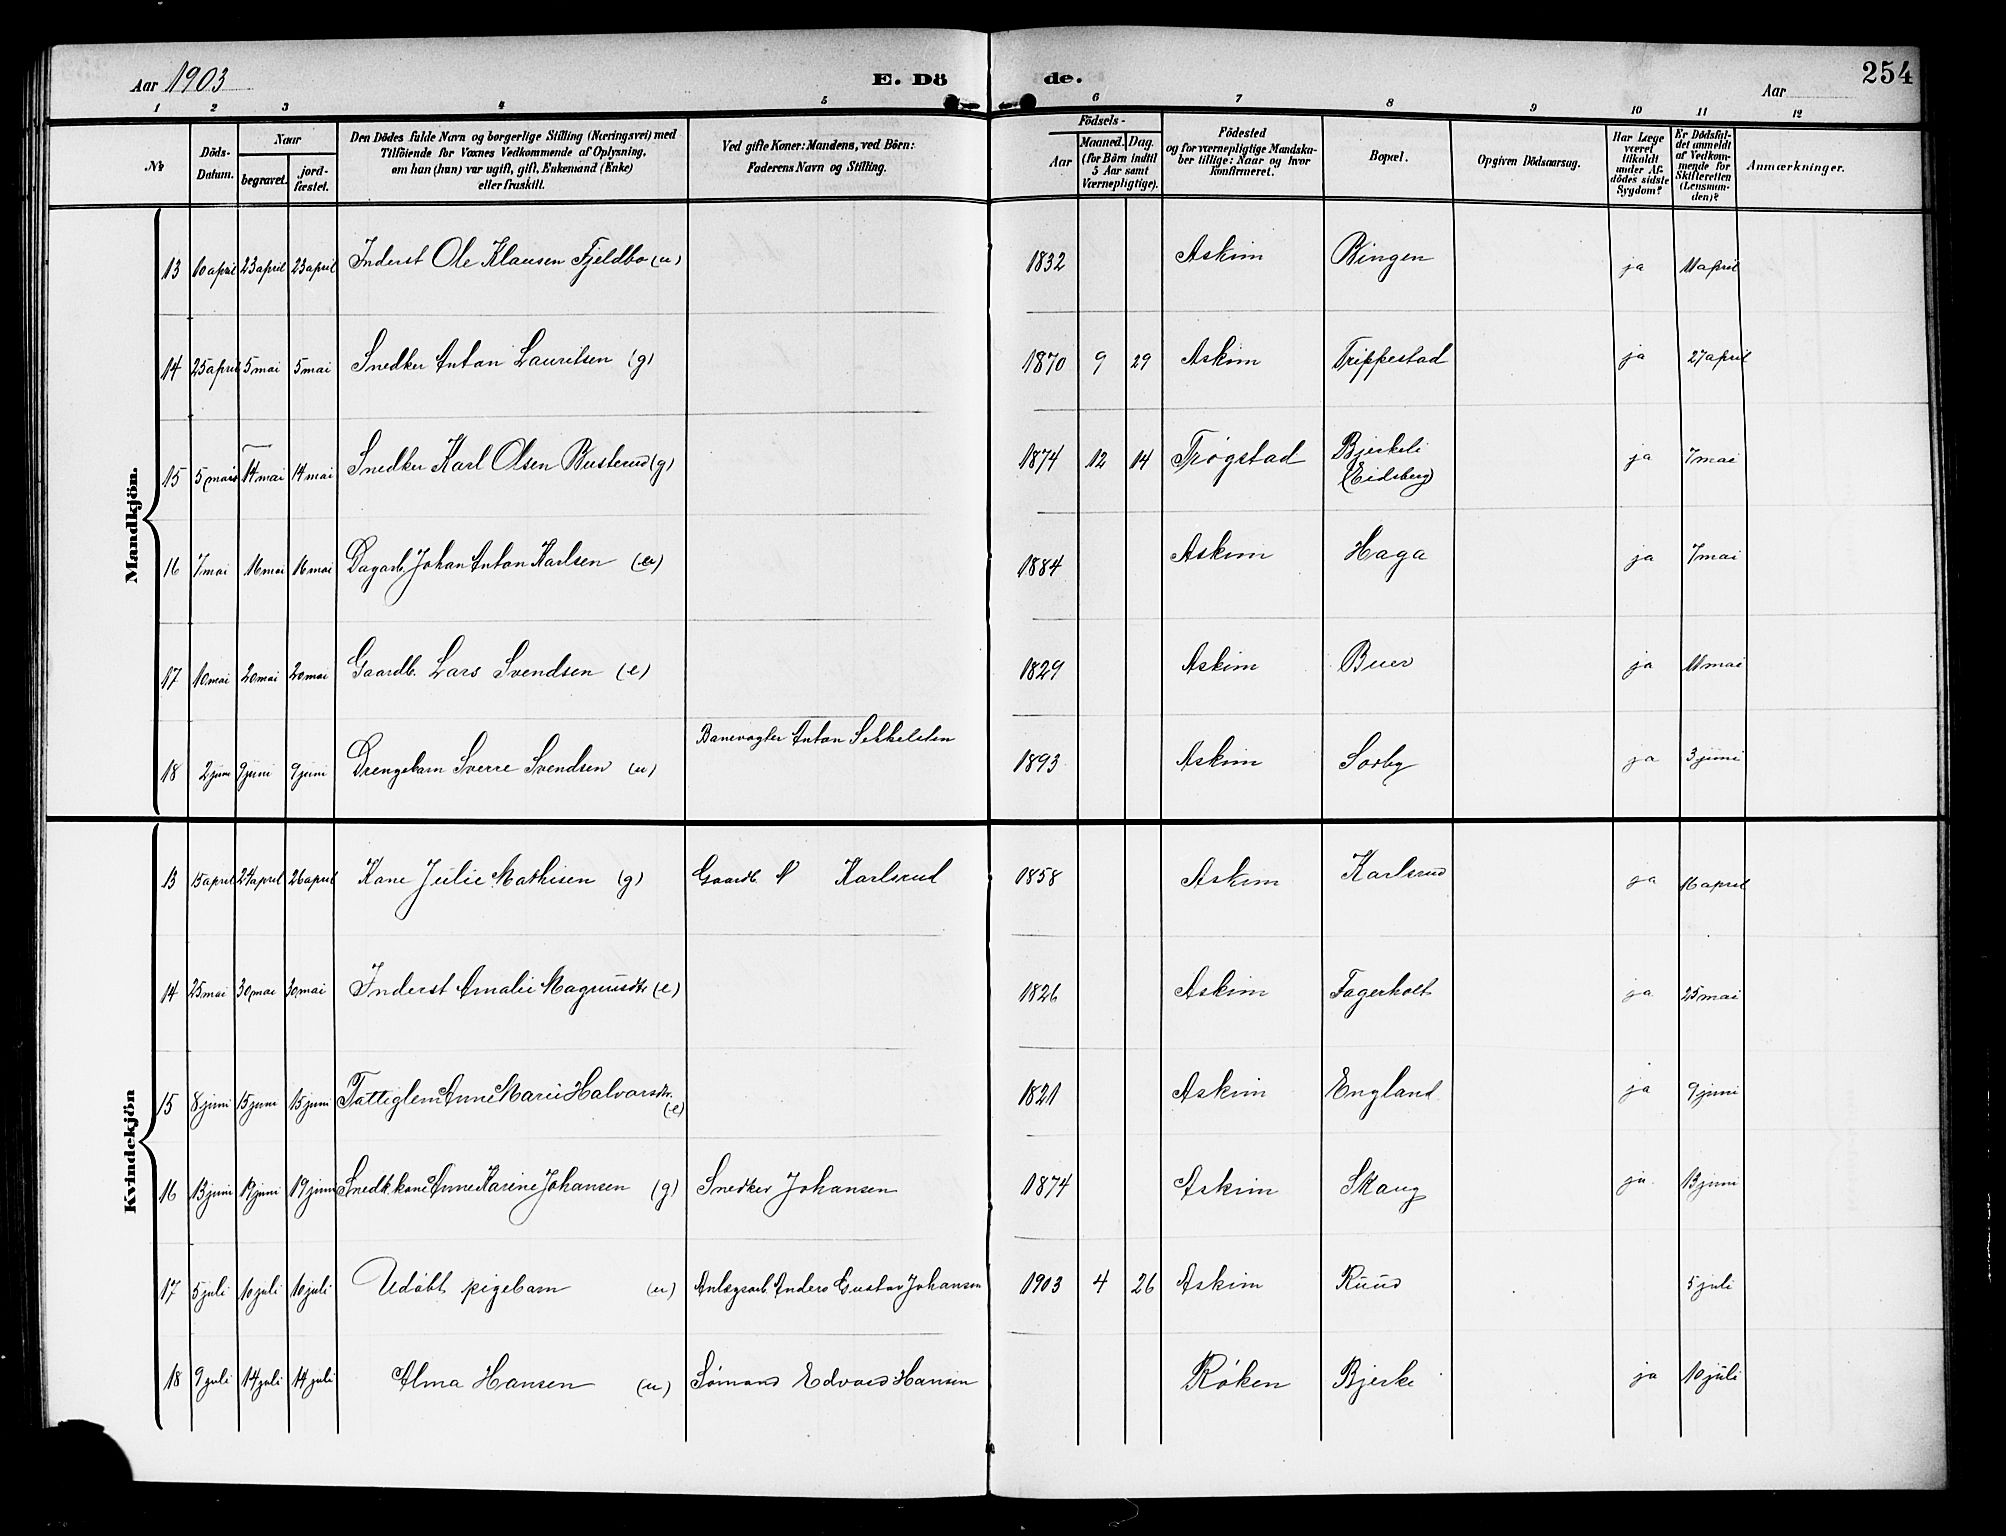 Aar 1903 E. Dö de. Aar 254
1 2 3 4 5 6 7 8 9 10 11 12
No
Döds-Datum.
Naar
begravet.
jord-fæstet.
Den Dödes fulde Navn og borgerlige Stilling (Næringsvei) med
Tilföiende for Voxnes Vedkommende af Oplysning,
om han (hun) var ugift, gift, Enkemand (Enke)
eller fraskilt.
Ved gifte Koner: Mandens, ved Börn:
Faderens Navn og Stilling.
Födsels-
Aar
Maaned. Dag.
(for Börn indtil
5 Aar samt
Værnepligtige).
Födested
og for værnepligtige Mandska-
ber tillige: Naar og hvor
konfirmeret.
Bopæl.
Opgiven Dödsaarsag.
Har Læge
været
tilkaldt
under Af-
dödes sidste
Sygdom?
Er Dödsfal-
det anmeldt
af Vedkom-
mende for
Skifteretten
(Lensman-
den)?
Anmærkninger.
Mandkjön.
13 10 april 23 april 23 april Inderst Ole Klausen Fjeldbo (u) 1832 Askim Bingen ja 11 april
14 25 april 5 mai 5 mai Snedker Anton Lauritsen (g) 1870 9 29 Askim Trippestad ja 27 april
15 5 mai 14 mai 14 mai Snedker Karl Olsen Busterud (g) 1874 12 14 Trøgstad Bjerkeli (Eidsberg) ja 7 mai
16 7 mai 16 mai 16 mai Dagarb. Johan Anton Karlsen (u) 1884 Askim Haga ja 7 mai
17 10 mai 20 mai 20 mai Gaardb. Lars Svendsen (e) 1829 Askim Buer ja 11 mai
18 2 juni 9 juni 9 juni Drengebarn Sverre Svendsen (u) Banevogter Anton Sekkelsten 1893 Askim Sorby ja 3 juni
Kvindekjön
13 15 april 24 april 26 april Kone Julie Mathisen (g) Gaardb. N Karlsrud 1858 Askim Karlsrud ja 16 april
14 25 mai 30 mai 30 mai Inderst Amalie Magnusdtr (e) 1826 Askim Fagerholt ja 25 mai
15 8 juni 15 juni 15 juni Fattiglem Anne Marie Halvorsdtr. (e) 1821 Askim England ja 9 juni
16 13 juni 19 juni 19 juni Snedk. kone Anne Karine Johansen (g) Snedker Johansen 1874 Askim Skaug ja 13 juni
17 5 juli 10 juli 10 juli Udöbt pigebarn (u) Anlægsarb. Anders Gustav Johansen 1903 4 26 Askim Ruud 5 juli
18 9 juli 14 juli 14 juli Alma Hansen (u) Sømand Edvard Hansen Røken Bjerke ja 10 juli